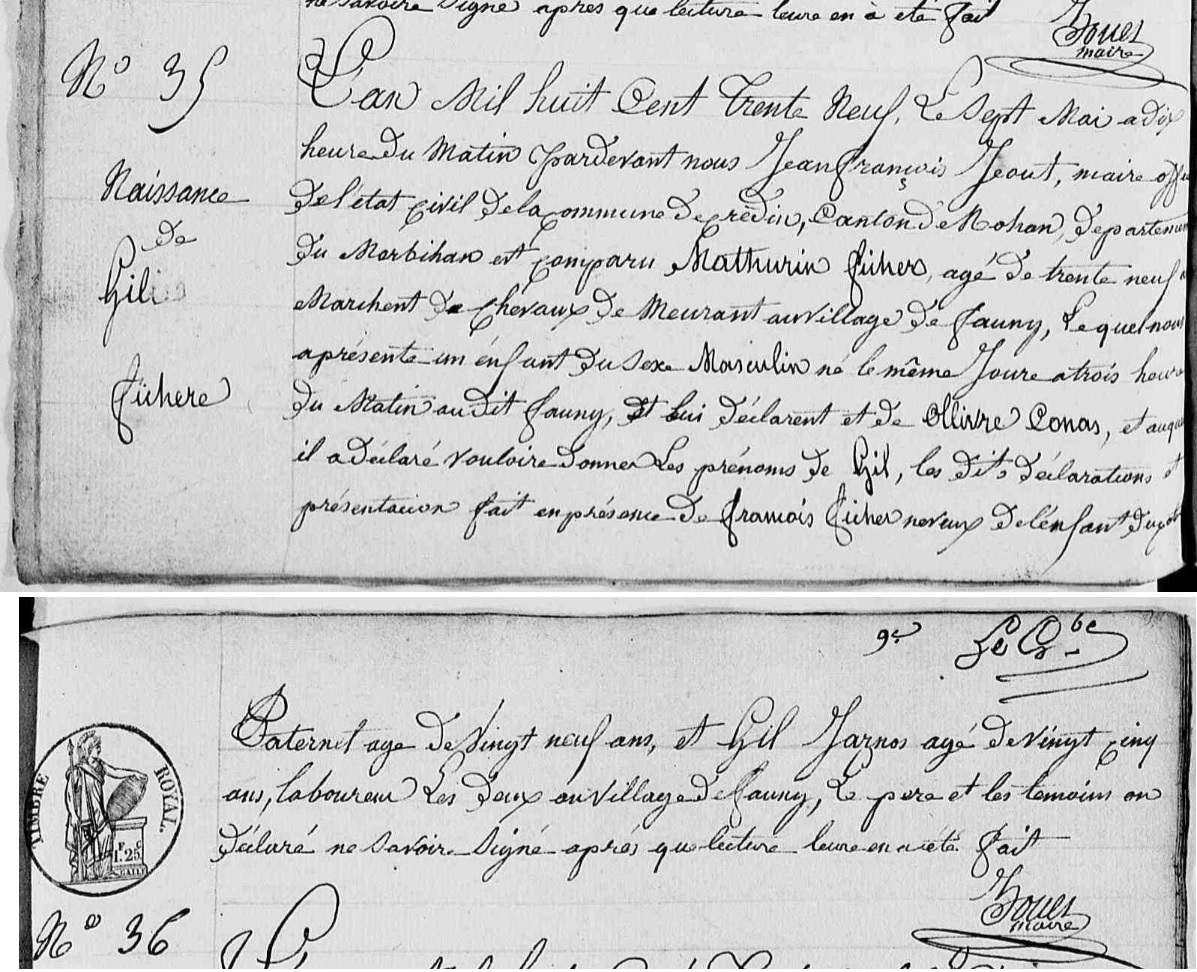 ne savoire signé apres que lecture leure en à eté fait
maire
N° 35
Naissance
de
Gil
fichere
L'an Mil huit Cent trente Neuf, Le Sept Mai a dix
heure du Matin pardevant nous Jean françois Jouet, maire offi
De l'état civil De la commune De crédin, Canton de Rohan, Departemen
Du Morbihan est comparu Mathurin ficher, agé de trente neuf
Marchent de chevaux De Meurant au village De fauny, Le quel nous
a présente un énfant Du Sexe Masculin né le même Joure a trois heure
Du Matin au dit fauny, Et Lui déclarent et de Ollivre Conas, et auque
il a déclaré vouloire Donner Les prénoms De Gil, les Dits déclarations et
présentacion fait en présence De francois ficher neveux De l'énfant Du cot
9e
Paternel age de vingt neuf ans, et Gil Jarnos agé De vingt cinq
ans, laboureur Les Deux au village De fauny, Le pere et les temoins on
Déclaré ne savoire Signé aprés que lecture leure en a été fait
Jouet
maire
TIMBRE ROYAL
F. C.
1.25
N° 36